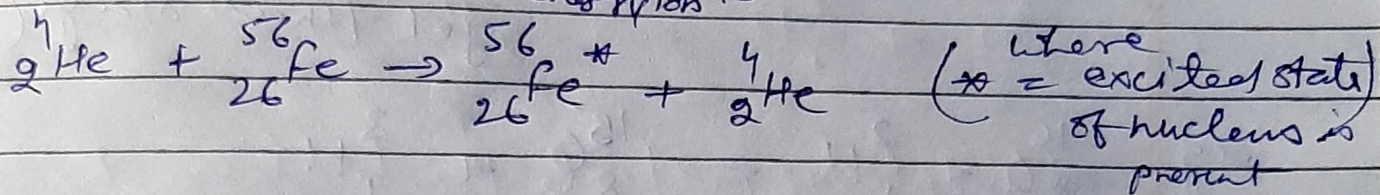 ⁴₂He + ⁵⁶₂₆Fe → ⁵⁶₂₆Fe* + ⁴₂He (where * = excited state)
of nucleus is
present